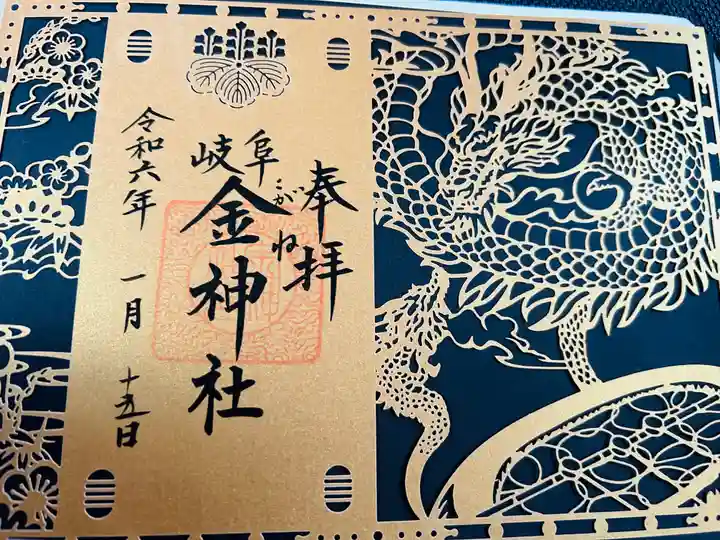 奉拝
岐阜
金神社
こがね
令和六年 一月 十五日